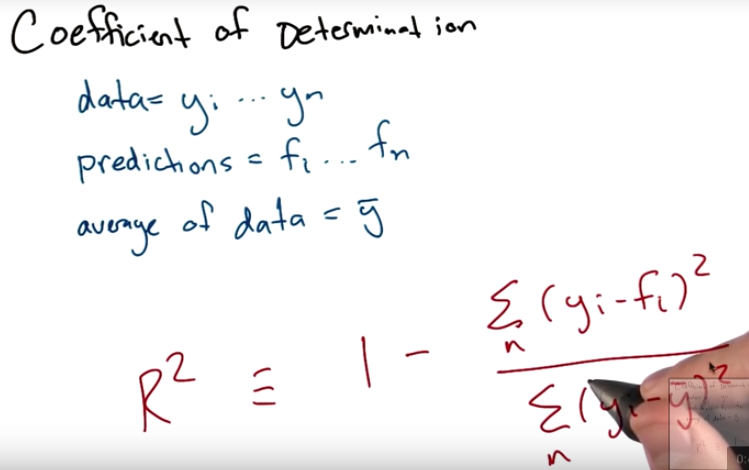 Coefficient of Determination
data= yi ... yn
predictions = fi ... fn
average of data = ȳ
R² ≡ 1 - Σn (yi-fi)² / Σn (yi-y)²